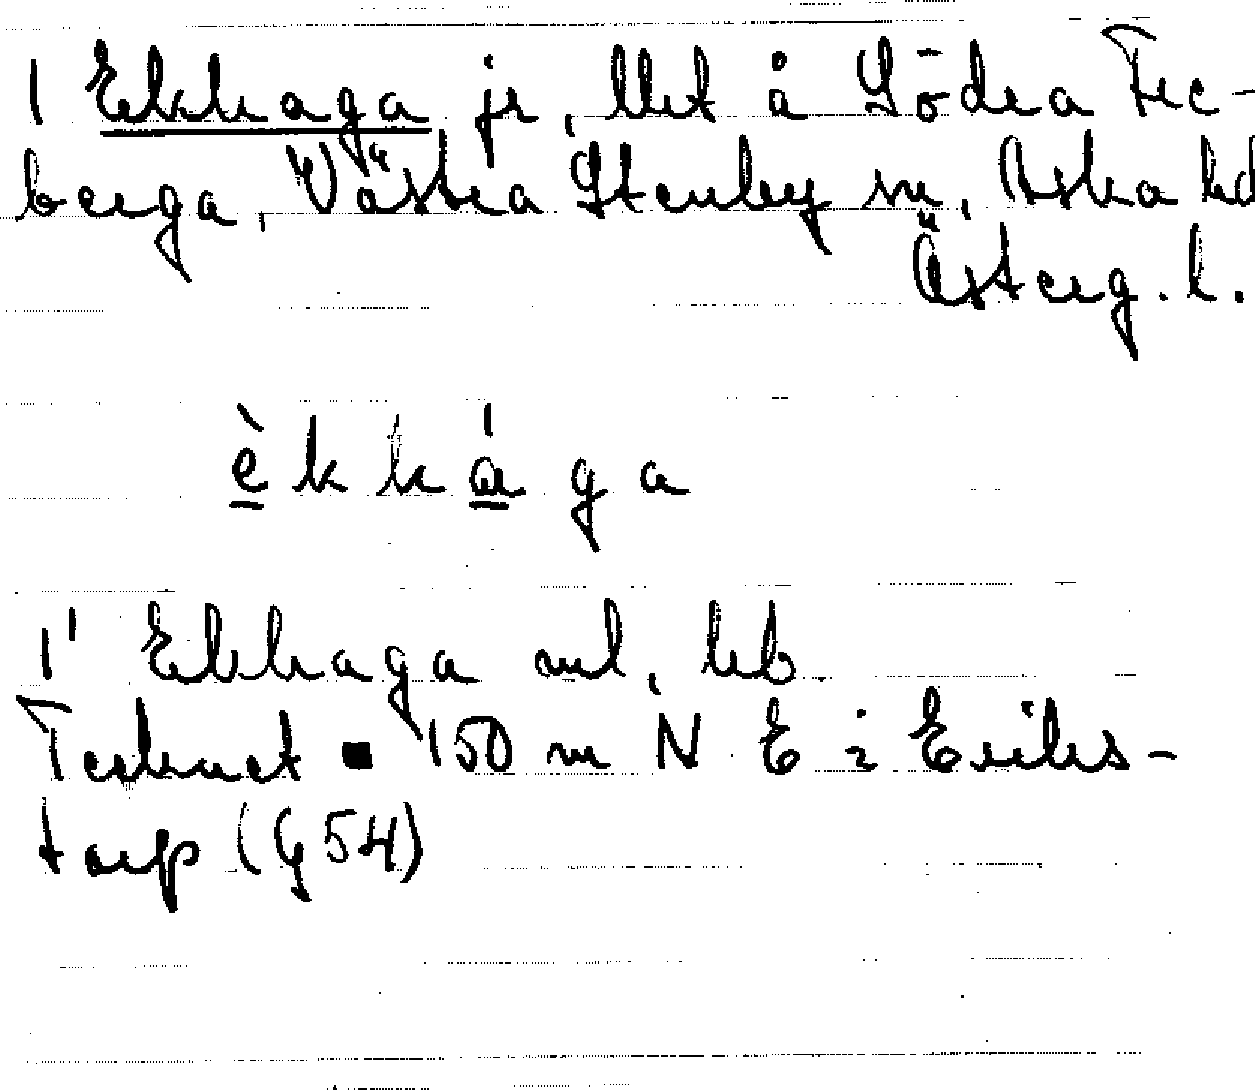 1 Ekhaga jr, å Södra Fre-
berga, Västra Stenby sn, Aska hd
Österg. l.
è k h á g a
1' Ekhaga
Tecknet ■ 150 m N E i Eriks-
torp (G54)